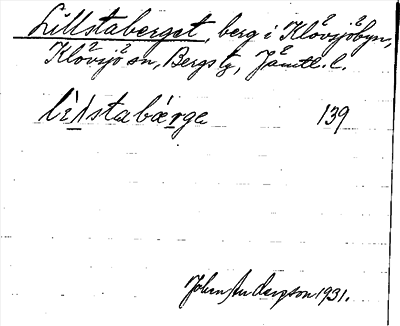 Lillstaberget, berg i Klövsjöbyn,
Klövsjö sn, Bergs tg, Jämtl. l.
lìlstabárge 139
John Anderson 1931.